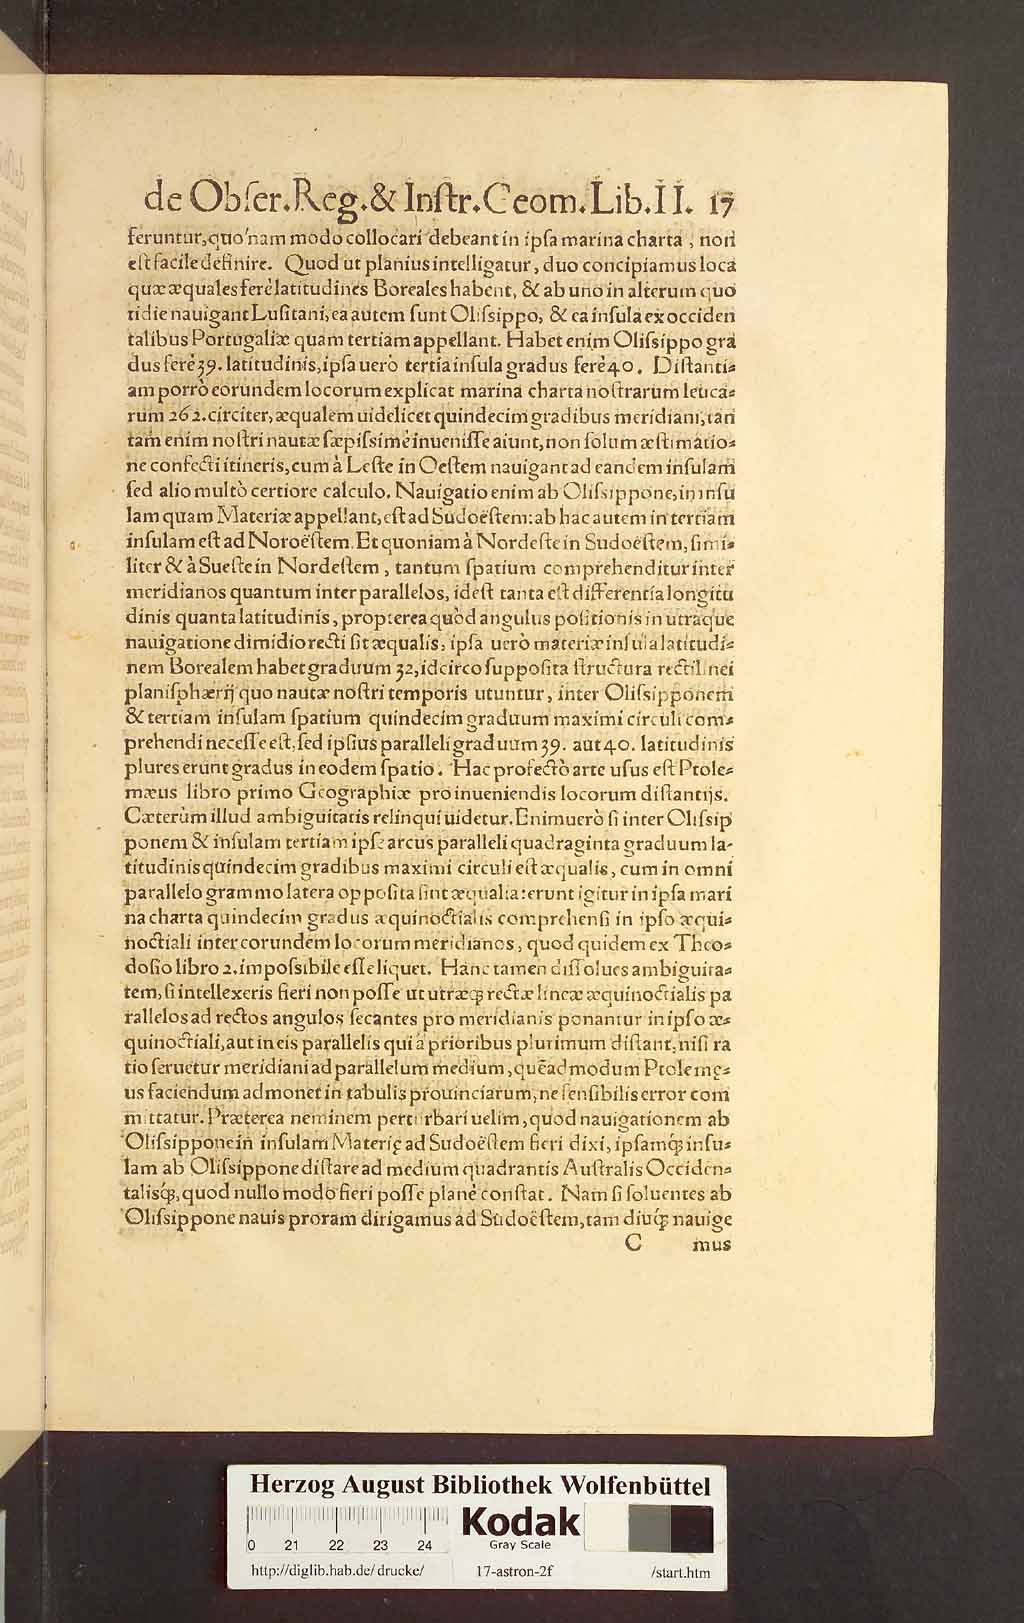 de Obſer.Reg.& Inſtr.Geom.Lib.II. 17
feruntur, quo'nam modo collocari debeant in ipſa marina charta, non
eſt facile definire. Quod ut planius intelligatur, duo concipiamus loca
quæ æquales ferè latitudines Boreales habent, & ab uno in alterum quo
tidie nauigant Luſitani, ea autem ſunt Oliſsippo, & ea inſula ex occiden
talibus Portugaliæ quam tertiam appellant. Habet enim Oliſsippo gra
dus ferè 39. latitudinis, ipſa uerò tertia inſula gradus ferè 40. Diſtanti⸗
am porrò eorundem locorum explicat marina charta noſtrarum leuca⸗
rum 262. circiter, æqualem uidelicet quindecim gradibus meridiani, tan
tam enim noſtri nautæ ſæpiſsimè inueniſſe aiunt, non ſolum æſtimatio⸗
ne confecti itineris, cum à Leſte in Oeſtem nauigant ad eandem inſulam
ſed alio multò certiore calculo. Nauigatio enim ab Oliſsippone, in inſu
lam quam Materiæ appellant, eſt ad Sudoëſtem: ab hac autem in tertiam
inſulam eſt ad Noroëſtem. Et quoniam à Nordeſte in Sudoëſtem, ſimi⸗
liter & à Sueſte in Nordeſtem, tantum ſpatium comprehenditur inter
meridianos quantum inter parallelos, id eſt tanta eſt differentia longitu
dinis quanta latitudinis, propterea quòd angulus poſitionis in utraque
nauigatione dimidio recti ſit æqualis, ipſa uerò materiæ inſula latitudi⸗
nem Borealem habet graduum 32, idcirco ſuppoſita ſtructura rectilinei
planiſphærij quo nautæ noſtri temporis utuntur, inter Oliſsipponem
& tertiam inſulam ſpatium quindecim graduum maximi circuli com⸗
prehendi neceſſe eſt, ſed ipſius paralleli graduum 39. aut 40. latitudinis
plures erunt gradus in eodem ſpatio. Hac profectò arte uſus eſt Ptole⸗
mæus libro primo Geographiæ pro inueniendis locorum diſtantijs.
Cæterùm illud ambiguitatis relinqui uidetur. Enimuerò ſi inter Oliſsip
ponem & inſulam tertiam ipſe arcus paralleli quadraginta graduum la-
titudinis quindecim gradibus maximi circuli eſt æqualis, cum in omni
parallelogrammo latera oppoſita ſint æqualia: erunt igitur in ipſa mari
na charta quindecim gradus æquinoctialis comprehenſi in ipſo æqui⸗
noctiali inter eorundem locorum meridianos, quod quidem ex Theo⸗
doſio libro 2. impoſsibile eſſe liquet. Hanc tamen diſſolues ambiguita⸗
tem, ſi intellexeris fieri non poſſe ut utræq́; rectæ lineæ æquinoctialis pa
rallelos ad rectos angulos ſecantes pro meridianis ponantur in ipſo æ⸗
quinoctiali, aut in eis parallelis qui à prioribus plurimum diſtant, niſi ra
tio ſeruetur meridiani ad parallelum medium, quẽadmodum Ptolemę⸗
us faciendum admonet in tabulis prouinciarum, ne ſenſibilis error com
mittatur. Præterea neminem perturbari uelim, quod nauigationem ab
Oliſsippone in inſulam Materię ad Sudoëſtem fieri dixi, ipſamq́; inſu⸗
lam ab Oliſsippone diſtare ad medium quadrantis Auſtralis Occiden⸗
talisq́;, quod nullo modo fieri poſſe planè conſtat. Nam ſi ſoluentes ab
Oliſsippone nauis proram dirigamus ad Sudoëſtem, tam diuq́; nauige
C mus
Herzog August Bibliothek Wolfenbüttel
0 21 22 23 24
Kodak
Gray Scale
http://diglib.hab.de/drucke/ 17-astron-2f /start.htm